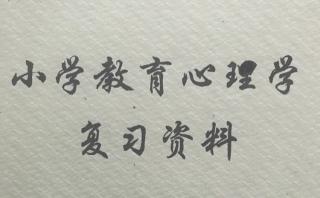 小学教育心理学
复习资料